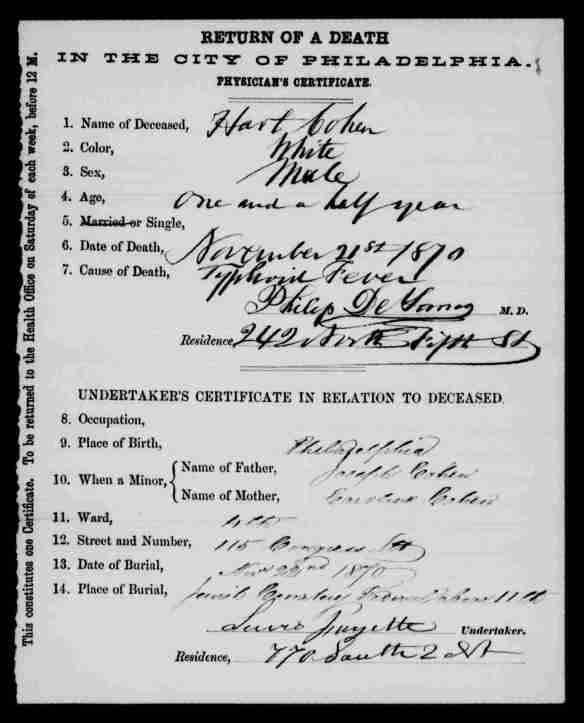 RETURN OF A DEATH
IN THE CITY OF PHILADELPHIA.
PHYSICIAN'S CERTIFICATE.
1. Name of Deceased, Hart Cohen
2. Color, White
3. Sex, Male
4. Age, One and a half year
5. Married or Single,
6. Date of Death, November 21st 1870
7. Cause of Death, Typhoid Fever
Philip De Young M. D.
Residence, 242 North Fifth St
UNDERTAKER'S CERTIFICATE IN RELATION TO DECEASED.
8. Occupation,
9. Place of Birth, Philadelphia
10. When a Minor, Name of Father, Joseph Cohen
Name of Mother, Caroline Cohen
11. Ward, 4th
12. Street and Number, 115 Congress St
13. Date of Burial, Nov 22nd 1870
14. Place of Burial, Federal above 11th
Undertaker.
Residence, 770 South 2 St
This constitutes one Certificate. To be returned to the Health Office on Saturday of each week, before 12 M.